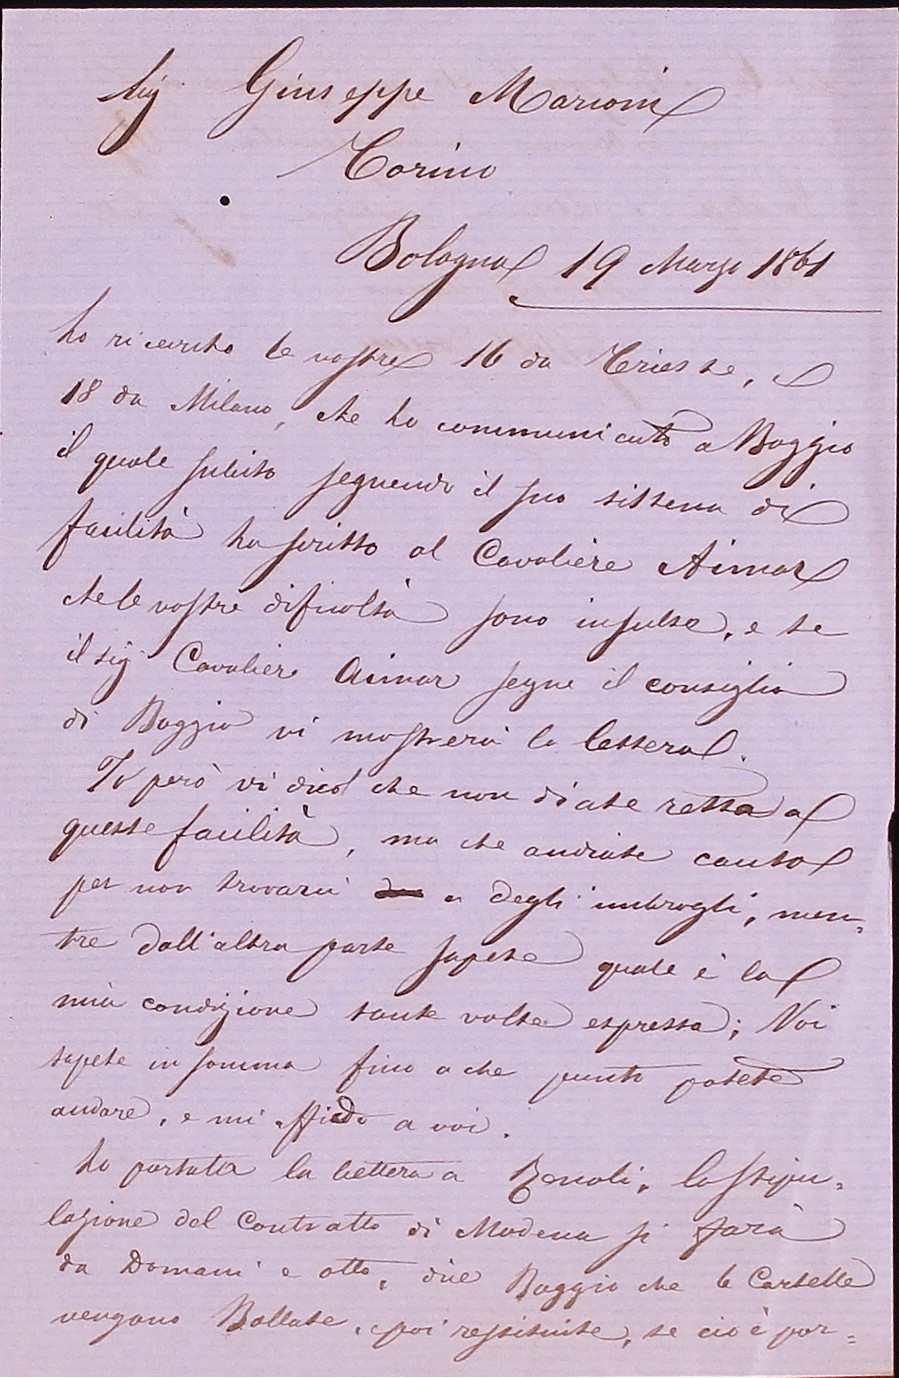 Sig Giuseppe Marioni
Torino
Bologna 19 Marzo 1861
ho ricevuto le vostre 16 da Trieste, e
18 da Milano, che ho communicato a Boggio
il quale subito seguendo il suo sistema di
facilità ha scritto al Cavaliere Aimar
che le vostre dificoltà sono insulse, e se
il sig Cavaliere Aimar segue il consiglio
di Boggio vi mostrerà la lettera.
Io però vi dico che non diate retta a
queste facilità, ma che andiate cauto
per non trovarvi a degli imbrogli, men=
tre dall'altra parte sapete quale è la
mia condizione tante volte espressa; Voi
sapete in somma fino a che punto potete
andare, e mi affido a voi.
ho portata la lettera a Zenoli, la stipu=
lazione del Contratto di Modena si farà
da Domani e otto, dice Boggio che le Cartelle
vengano Bollate, e poi restituite, se ciò è por=